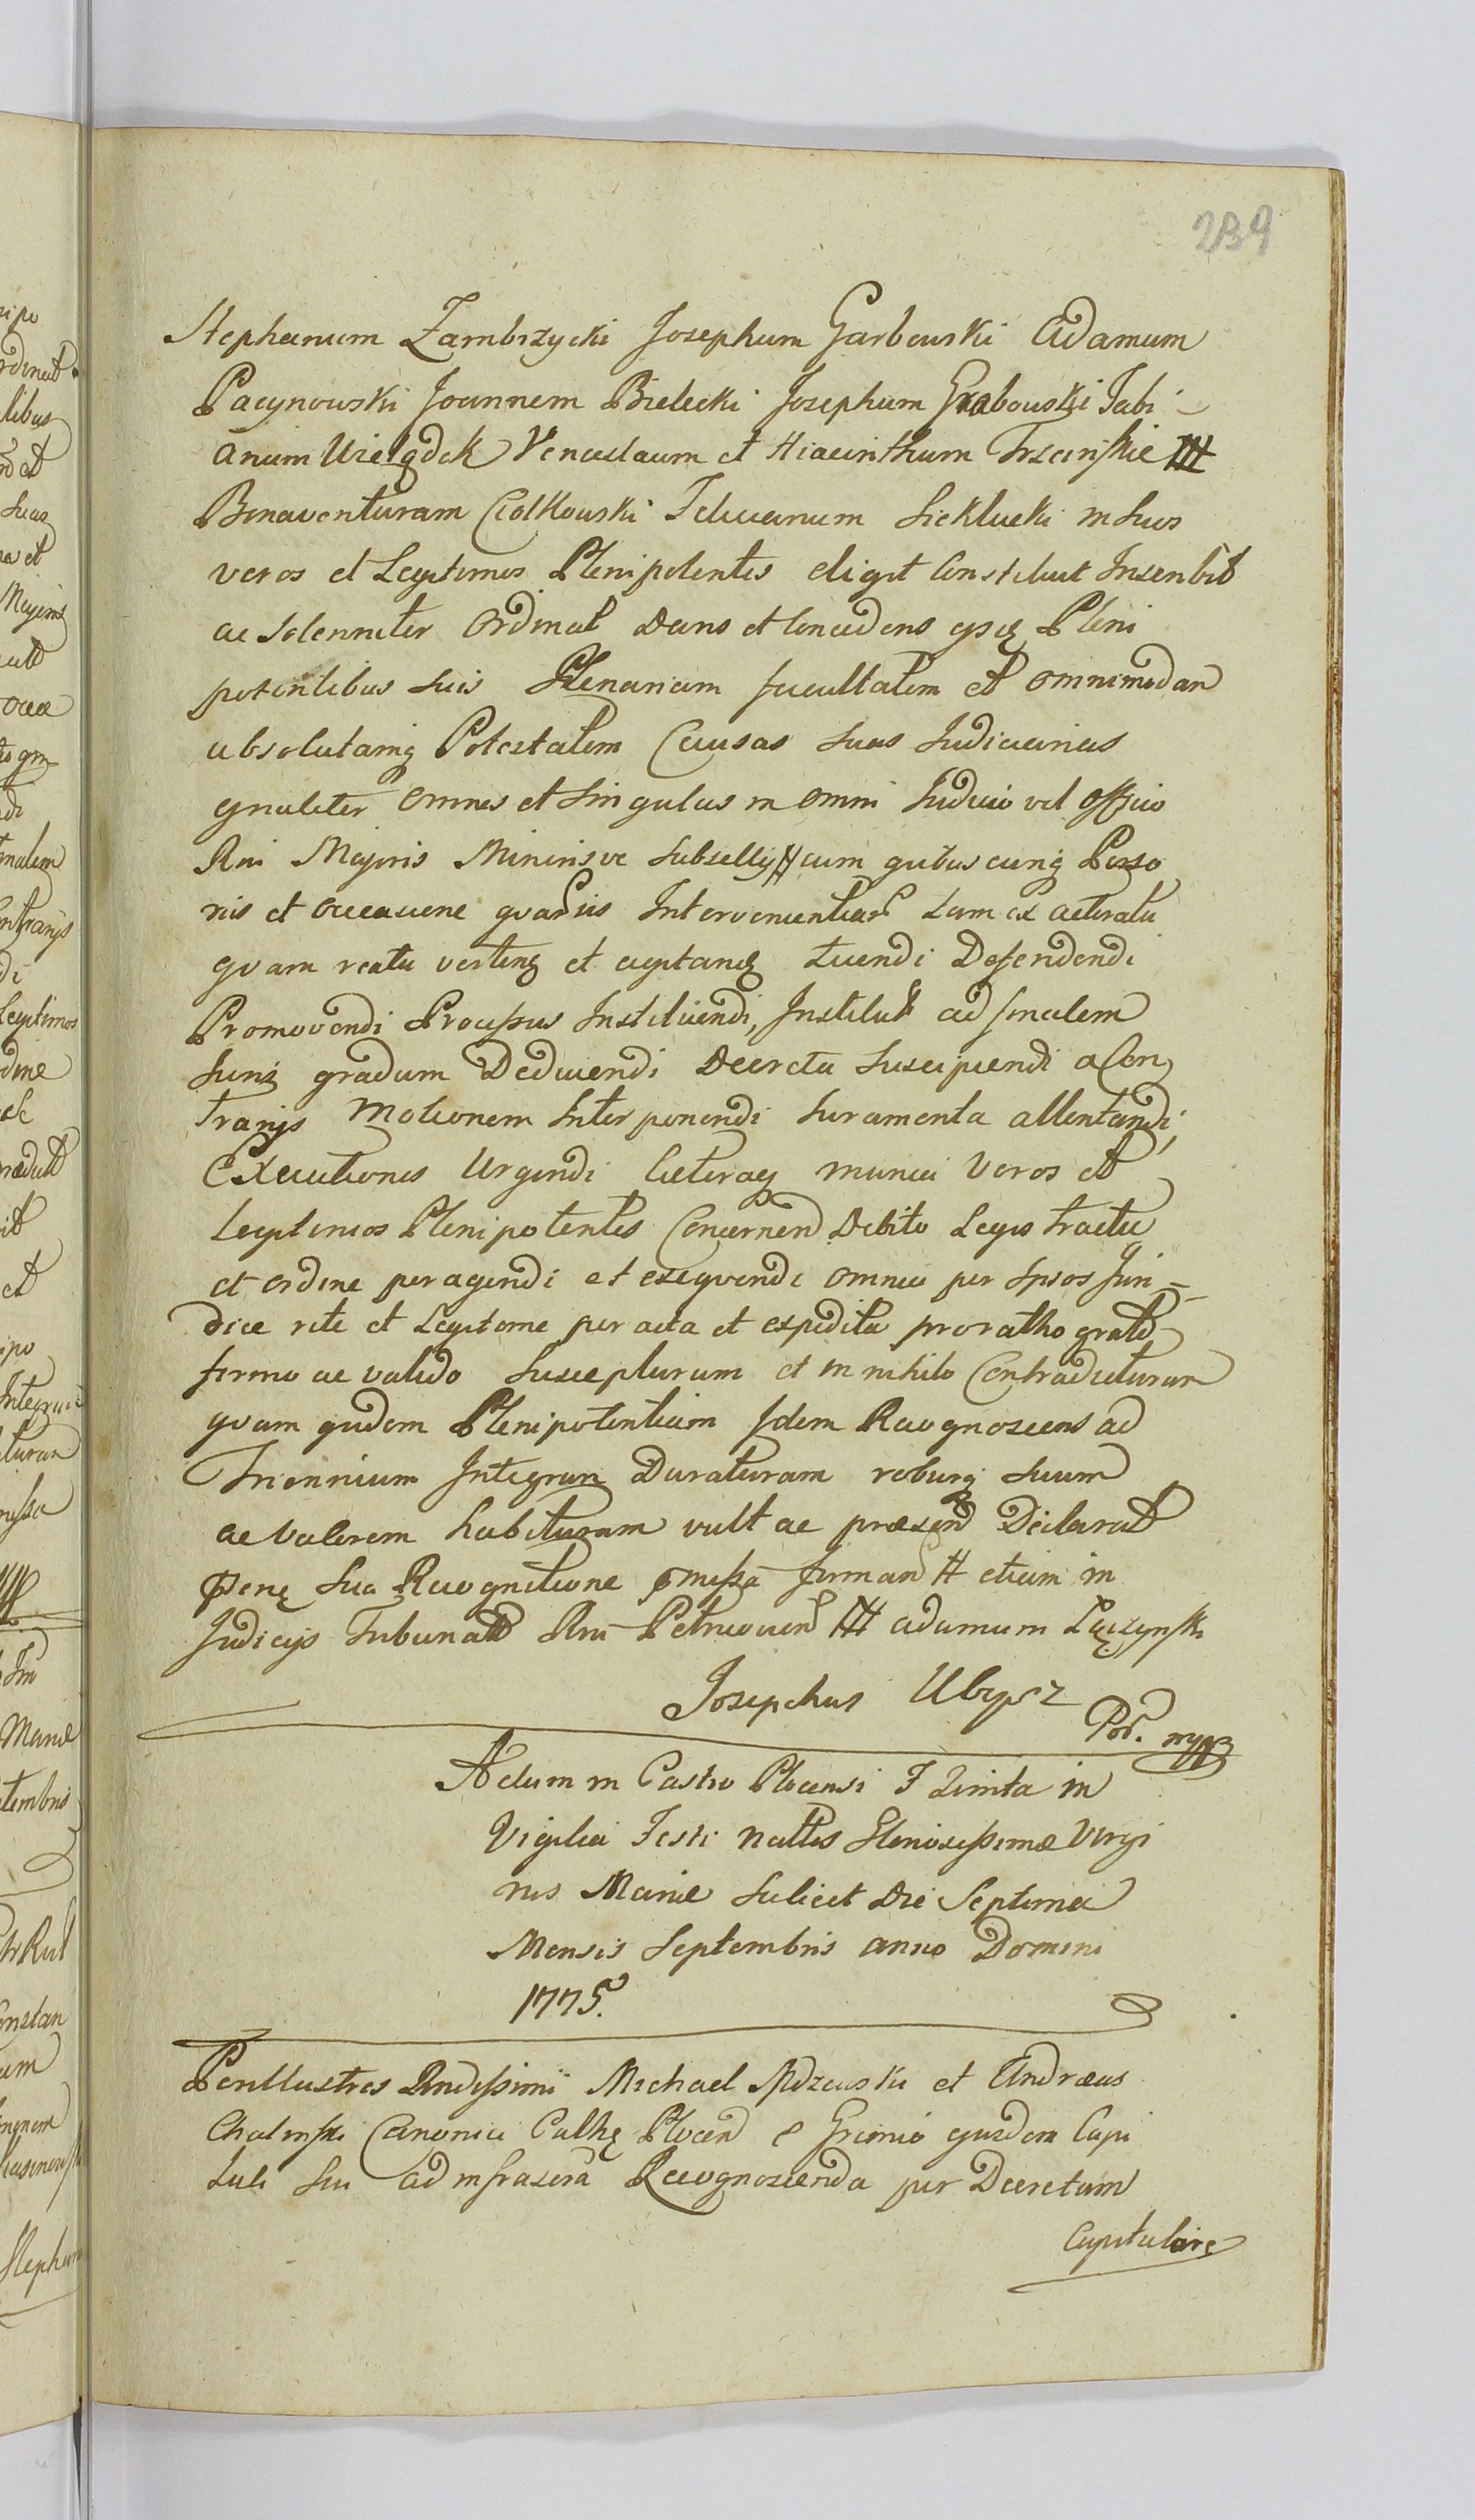 239
Stephanum Zambrzycki Josephum Garbowski Adamum
Pacynowski Joannem Bielecki Josephum Grabowski Fabi-
anum Wielgdek Venceslaum et Hiacinthum Trzcinskie
Bonaventuram Ciołkowski Felicianum Sieklucki in Suos
veros et Legitimos Plenipotentes eligit Constituit Inscribit
ac Solenniter Ordinat Dans et Concedens ejsq Pleni
potentibus suis Plenariam facultatem et omnimodam
absolutamq Potestatem Causas Suas Judiciarias
gnaliter omnes et Singulas in omni Judicio vel officio
Rni Majoris Minorisve Subsellij cum quibuscunq Perso
nis et occasione quavis Intervenientiarum tam ex actoratu
quam reatu verten et cuptan tuendi Defendendi
Promovendi Processus Instituendi, Institut ad finalem
Juris gradum Deducendi Decreta Suscipiendi a Con
trarijs Motionem Interponendi Juramenta attentandi,
Executiones Urgendi Ceteraq munia Veros et
Legitimos Plenipotentes Concernen Debito Legis tractu
et ordine peragendi et exequendi omnia per Ipsos Juri=
dice rite et Legitime per acta et expedita pro ratho grato
firmo ac valido Suscepturum et in nihilo Contradicturum
quam quidem Plenipotentiam Idem Recognoscens ad
Triennium Integrum Duraturam roburq suum
ac Valorem habituram vult ac præsen Declarat
Sua Recognitione pmissa firman etiam in
Judicijs Tribunal Rni Petricovien Adamum Łączynski
Josephus Ubysz
Por. mpp
Actum in Castro Plocensi F Quinta in
Vigilia Festi nattis Gloriosissimæ Virgi
nis Mariæ Scilicet Die Septima
Mensis Septembris anno Domini
1775.
Perillustres Rndissimi Michael et Andreas
Canonici Cathę Plocen e Gremio ejusdem Capi
tuli Sui ad infrascra Recognoscenda per Decretum
Capitulare